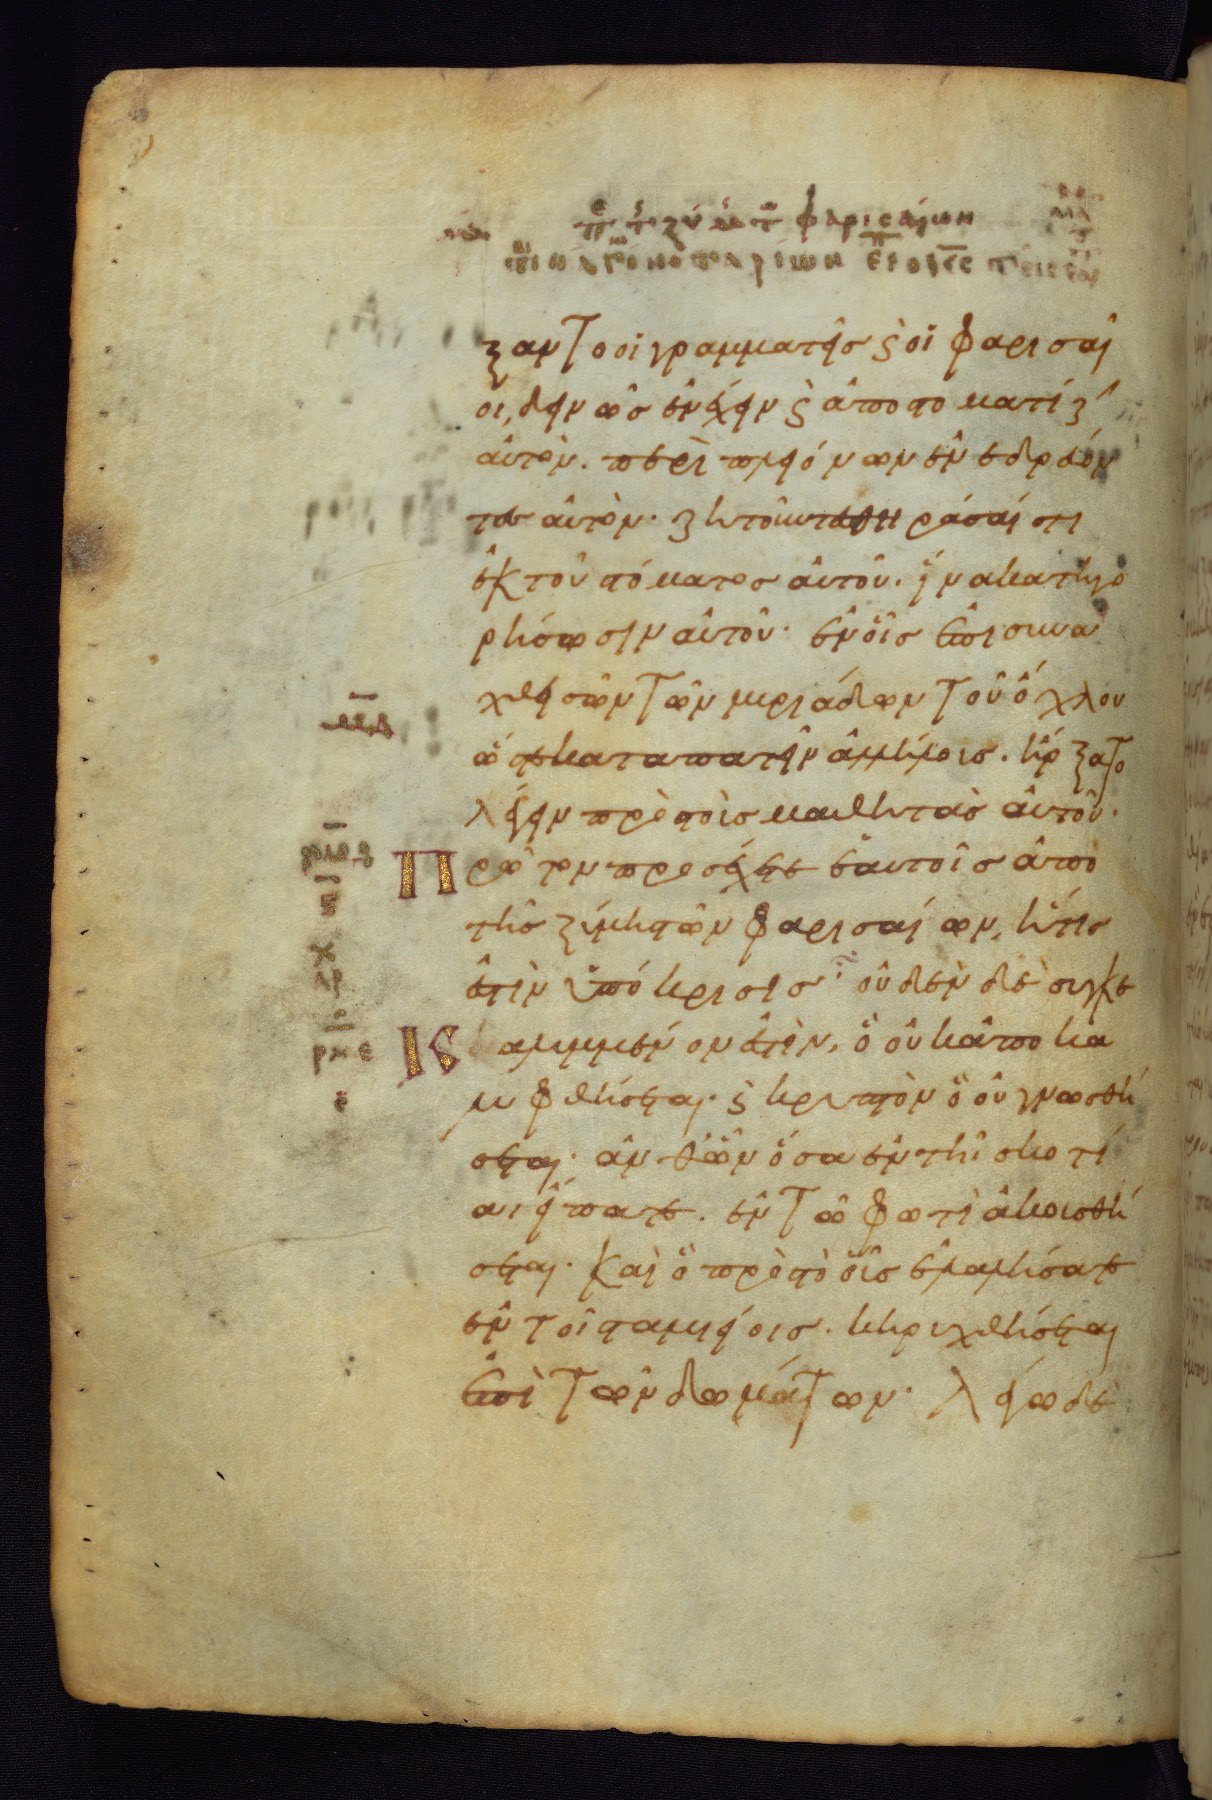 περὶ τῆς ζύμης τῶν φαρισαίων
ξαντο οἱ γραμματεῖς ϗ οἱ φαρισαῖ
οι, δεινῶς ἐνέχειν ϗ ἀποστοματίζειν
αὐτὸν. περὶ πλειόνων ἐνεδρεύον
τες αὐτὸν. ζητοῦντες θηρεύσαί τι
ἐκ τοῦ στόματος αὐτοῦ. ἵνα κατηγο
ρήσωσιν αὐτοῦ. ἐν οἷς ἐπισυνα
χθεισῶν τῶν μυριάδων τοῦ ὄχλου
ὥστε καταπατεῖν ἀλλήλοις. ἤρξατο
λέγειν πρὸς τοὺς μαθητὰς αὐτοῦ.
Πρῶτον προσέχετε ἑαυτοῖς ἀπὸ
τῆς ζύμης τῶν φαρισαίων, ἥτις
ἐστὶν ὑπόκρισις· οὐδὲν δὲ συγκε
καλυμμένον ἐστὶν, ὃ οὐκ ἀποκα
λυφθήσεται. ϗ κρυπτὸν ὃ οὐ γνωσθή
σεται. ἀνθ' ὧν ὅσα ἐν τῆ σκοτί
α εἴπατε. ἐν τῶ φωτὶ ἀκουσθή
σεται. καὶ ὃ πρὸς τὸ οὖς ἐλαλήσατε
ἐν τοῖς ταμείοις. κηρυχθήσεται
ἐπὶ τῶν δωμάτων. λέγω δὲ